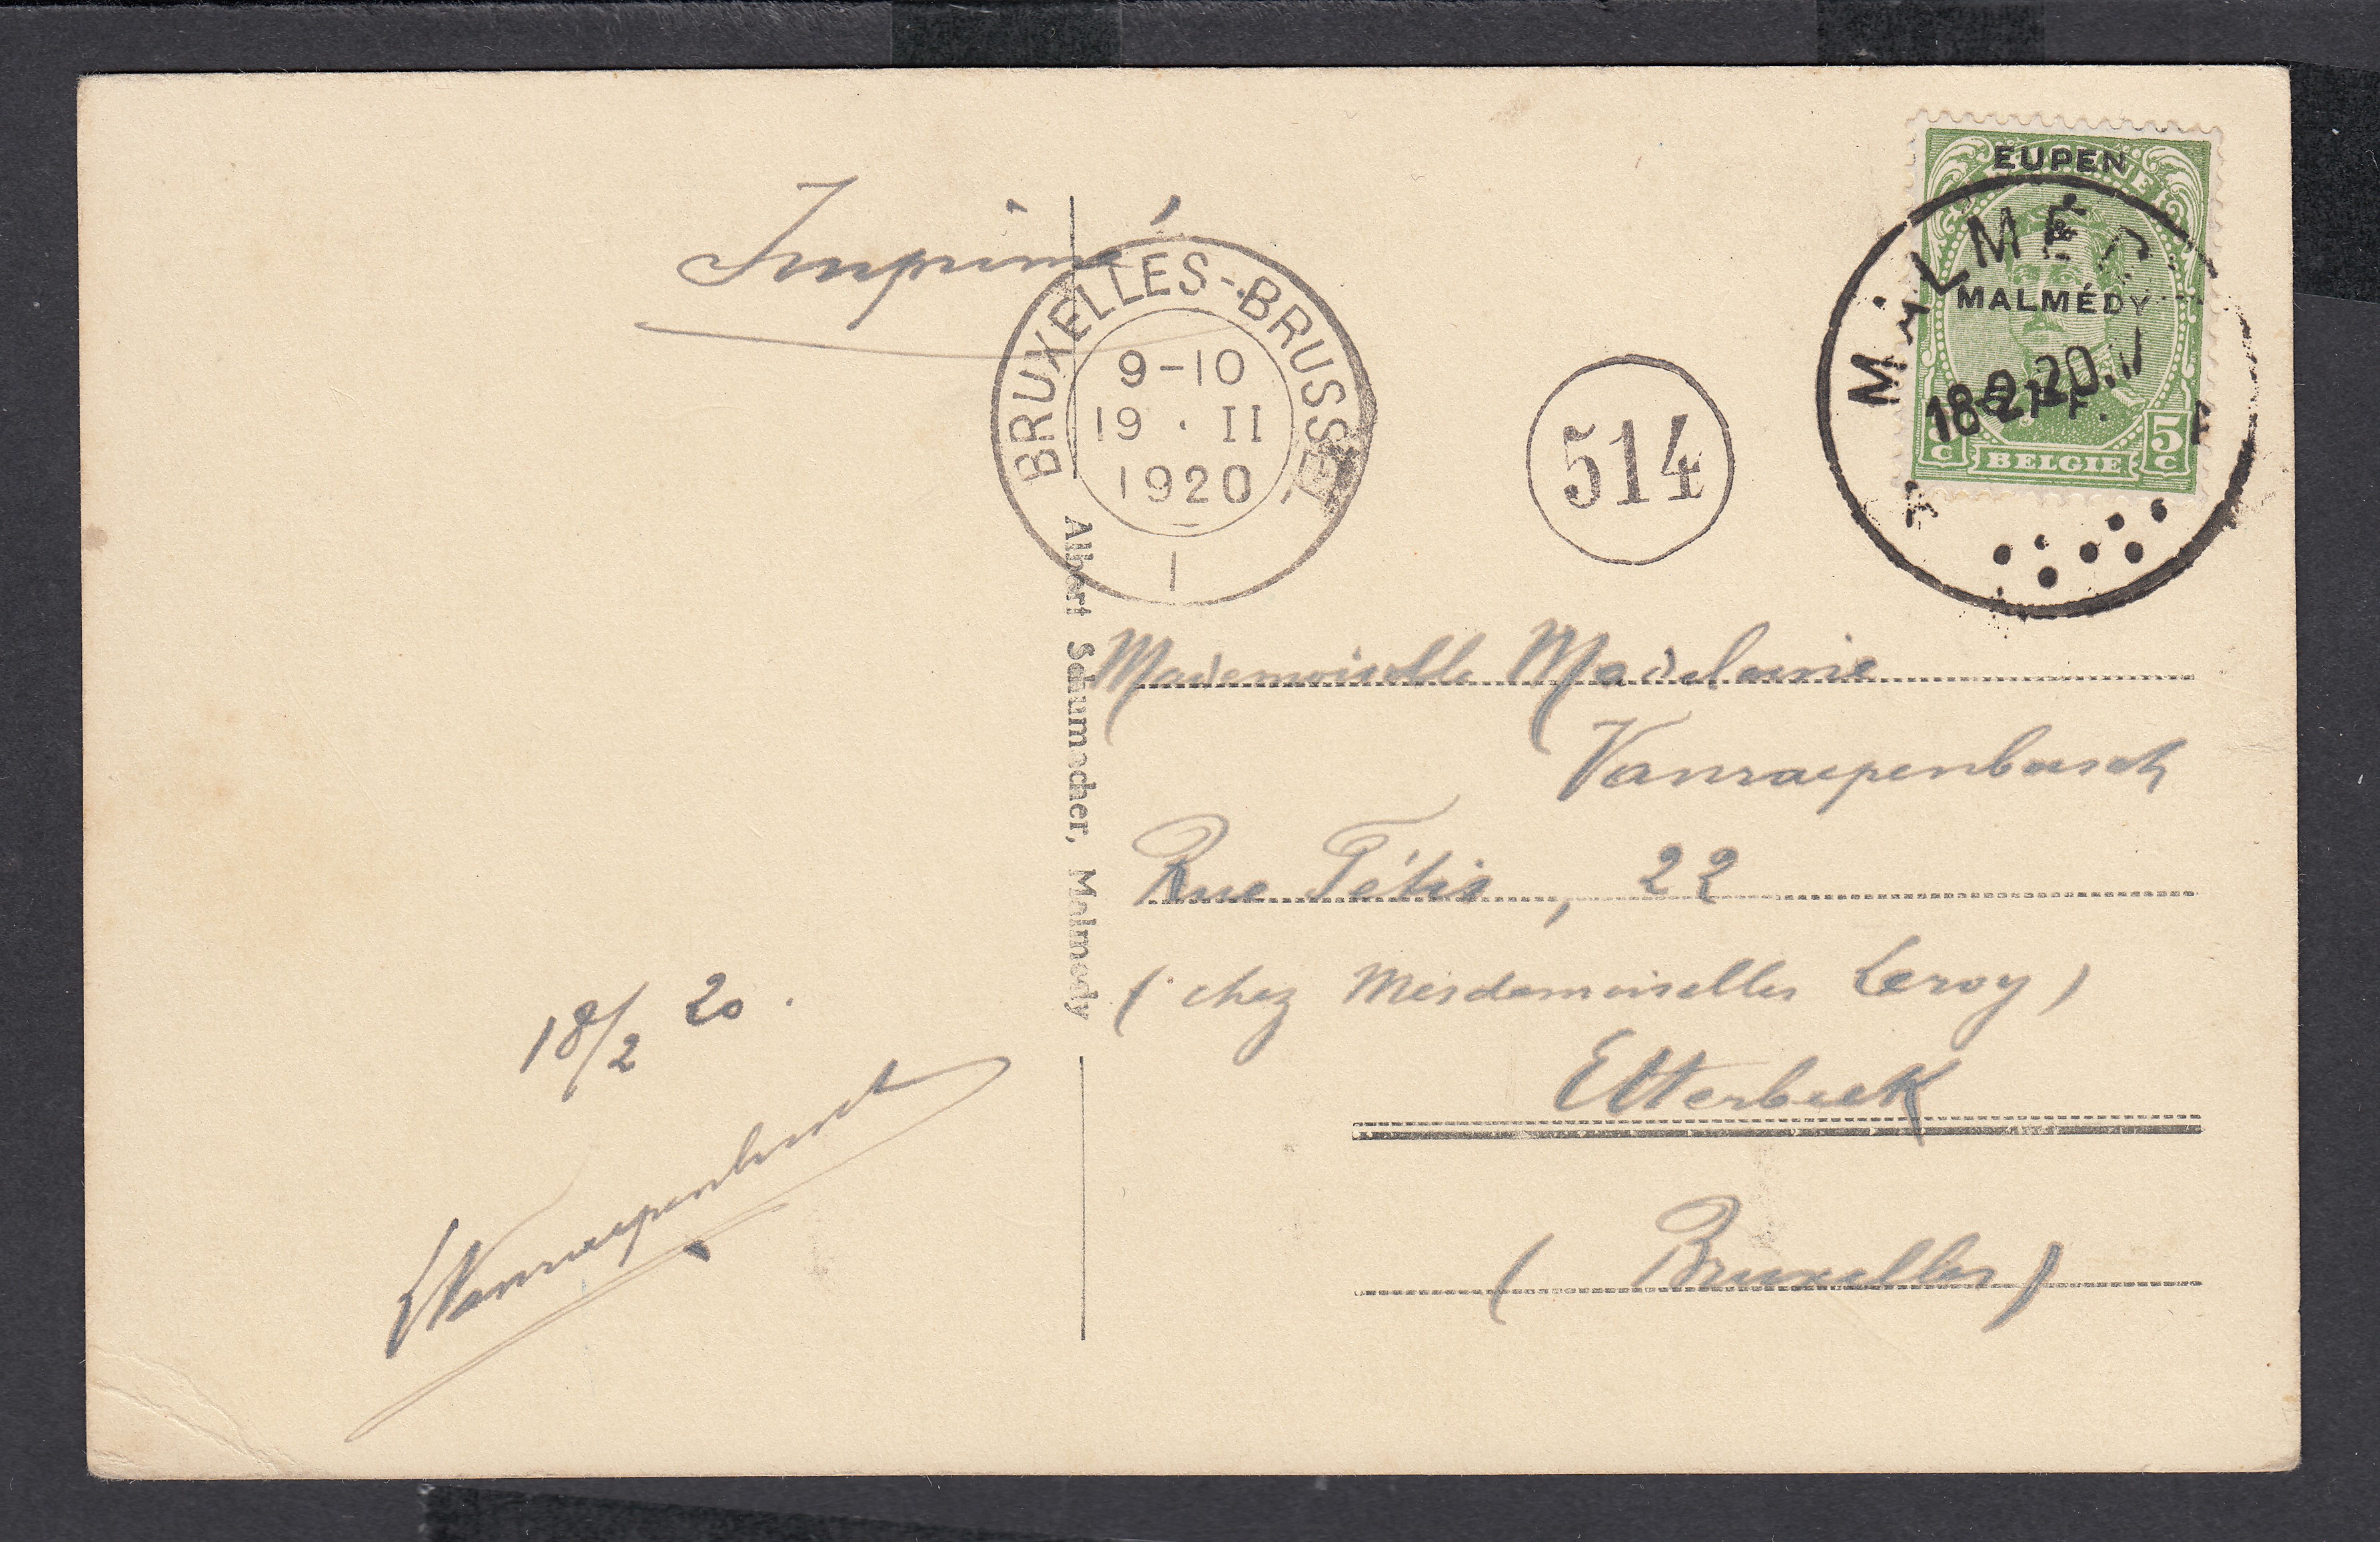 Imprimé
BRUXELLES-BRUSSEL
9-10
19 . II
1920
1
514
EUPEN
&
MALMÉDY
5 PF.
BELGIE
5
C
C
MALMÉD
18-2-20
Albert Schumacher, Malmedy
Mademoiselle Madeleine
Vanraepenbusch
Rue Fétis, 22
(chez Mesdemoiselles Leroy)
Etterbeek
(Bruxelles)
18/2 20.
Vanraepenbusch